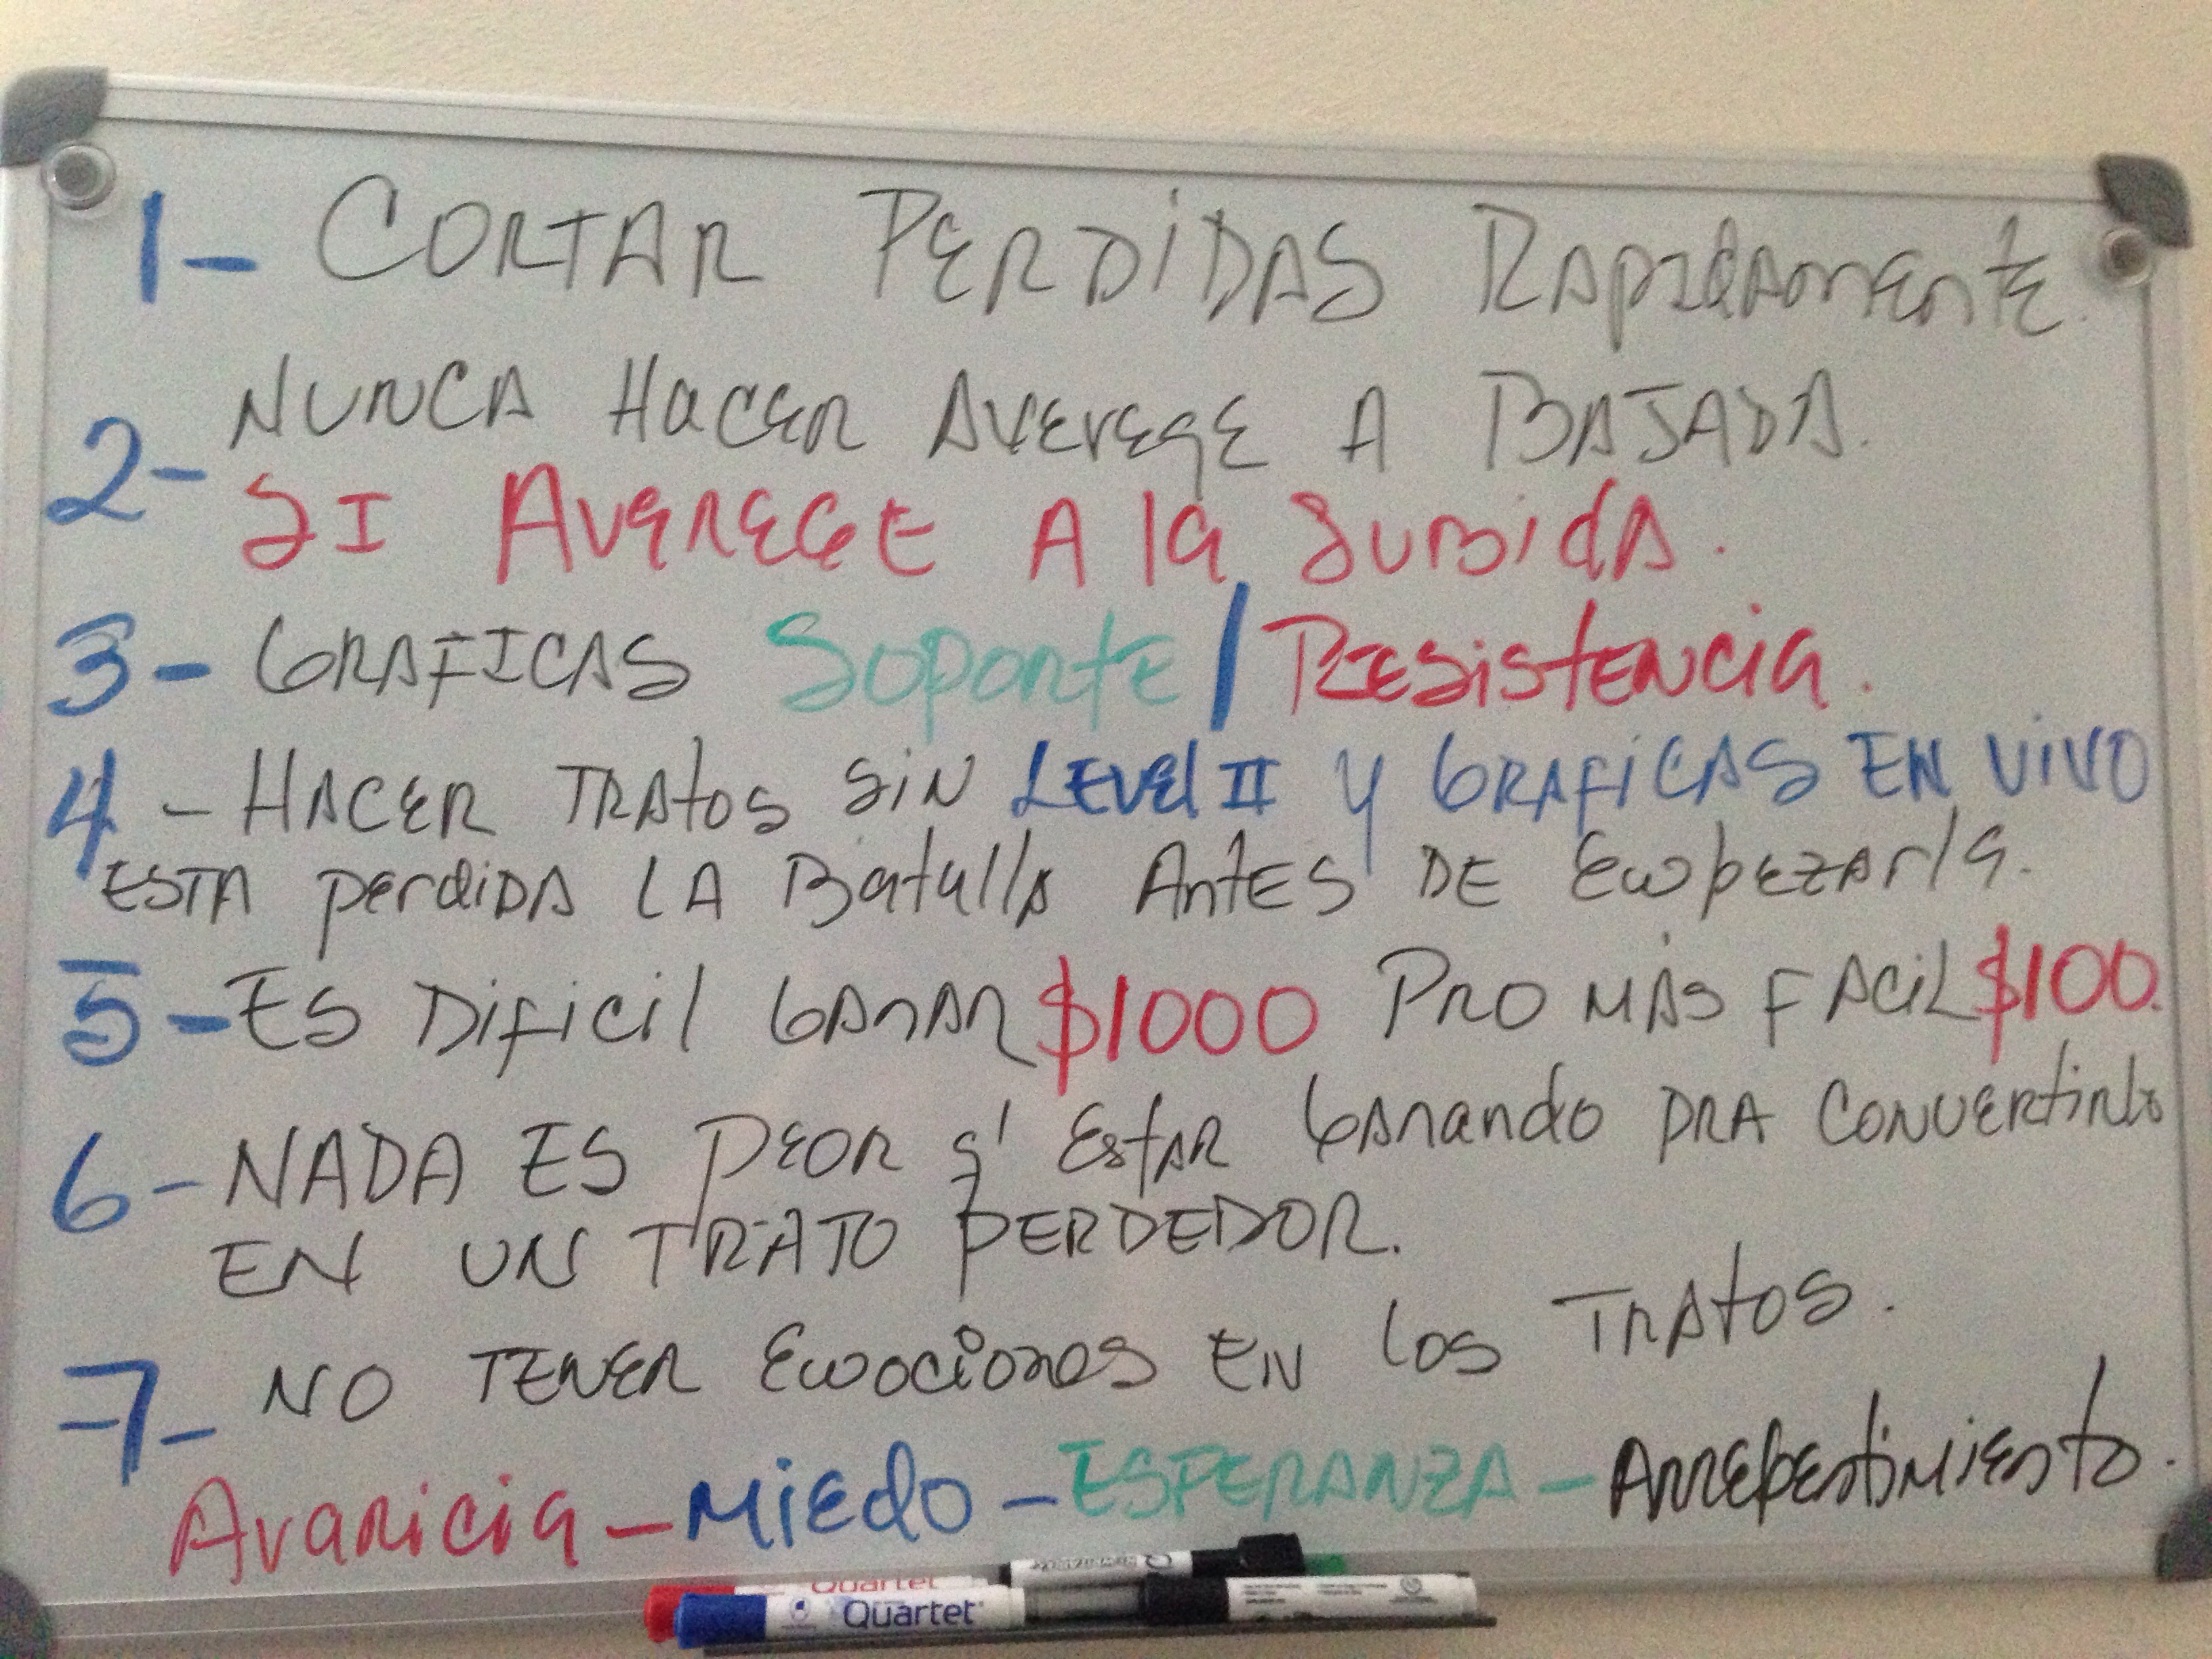 1- CORTAR PERDIDAS RAPIDAMENTE.
2- NUNCA HACER AVEREGE A BAJADA.
SI AVEREGE A la SUBIDA.
3- GRAFICAS Soporte / RESistENCia.
4- HACER TRAtos SiN LEVEl II Y GRAFiCAS EN ViVO
ESTA perdiDA LA Batalla AntES DE EmpEZARla.
5- ES Dificil GANAR $1000 PRO MÁS FACiL $100.
6- NADA ES PEOR q' EstAR GANando PRA CONVERtiRlo
EN UN TRATO PERDEDOR.
7- NO TENER Emociones EN los TRAtos.
Avaricia - MiEdo - ESPERANZA - ARREPENtiMiENto.
Quartet
Quartet